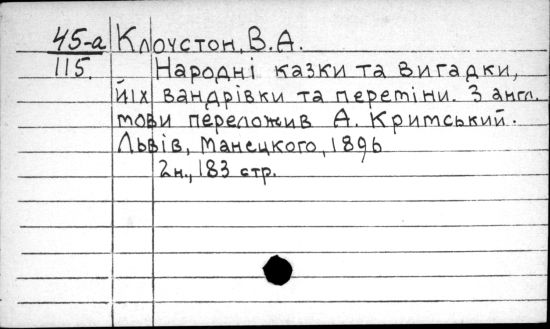 45-а Клоустон, В.А.
115. Народні казки та вигадки,
йіх вандрівки та переміни. З англ.
мови переложив А. Кримський.
Львів, Манецкого, 1896
2н., 183 стр.